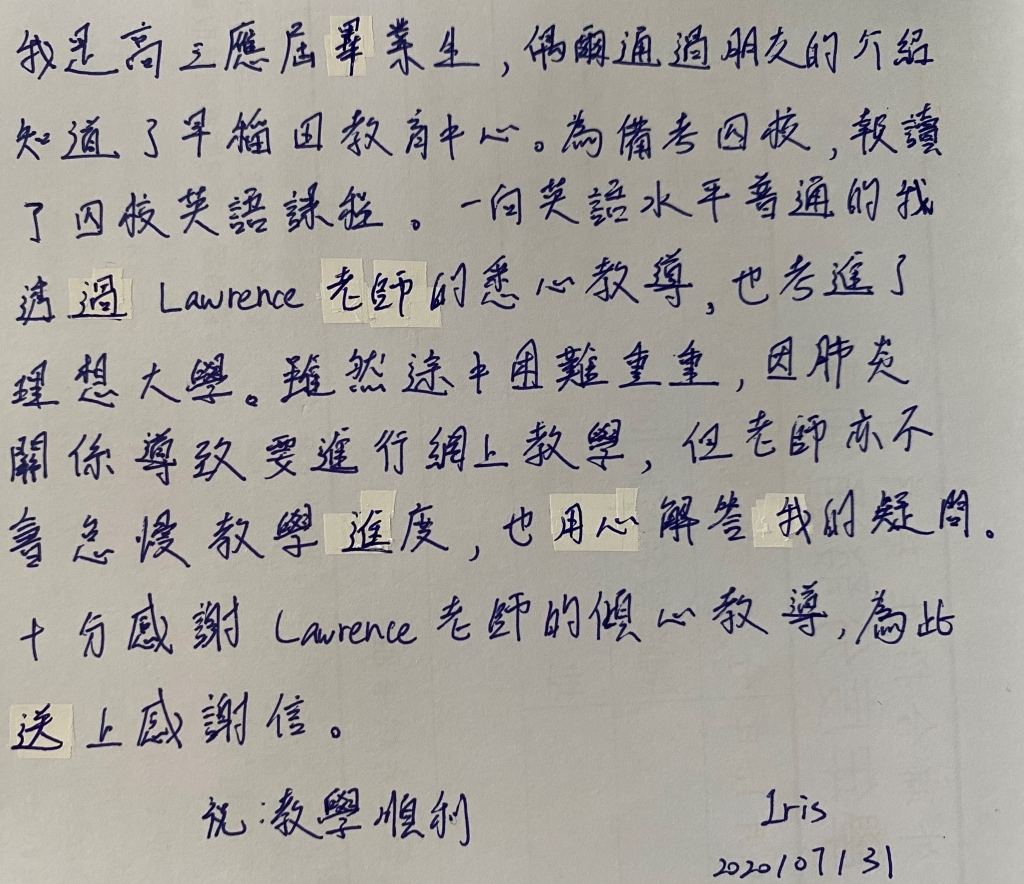 我是高三應屆畢業生，偶爾通過朋友的介紹
知道了早稲田教育中心。為備考四校，報讀
了四校英語課程。一向英語水平普通的我
透過 Lawrence 老師的悉心教導，也考進了
理想大學。雖然途中困難重重，因肺炎
關係導致要進行網上教學，但老師亦不
會怠慢教學進度，也用心解答我的疑問。
十分感謝 Lawrence 老師的傾心教導，為此
送上感謝信。
祝：教學順利
Iris
2020/07/31